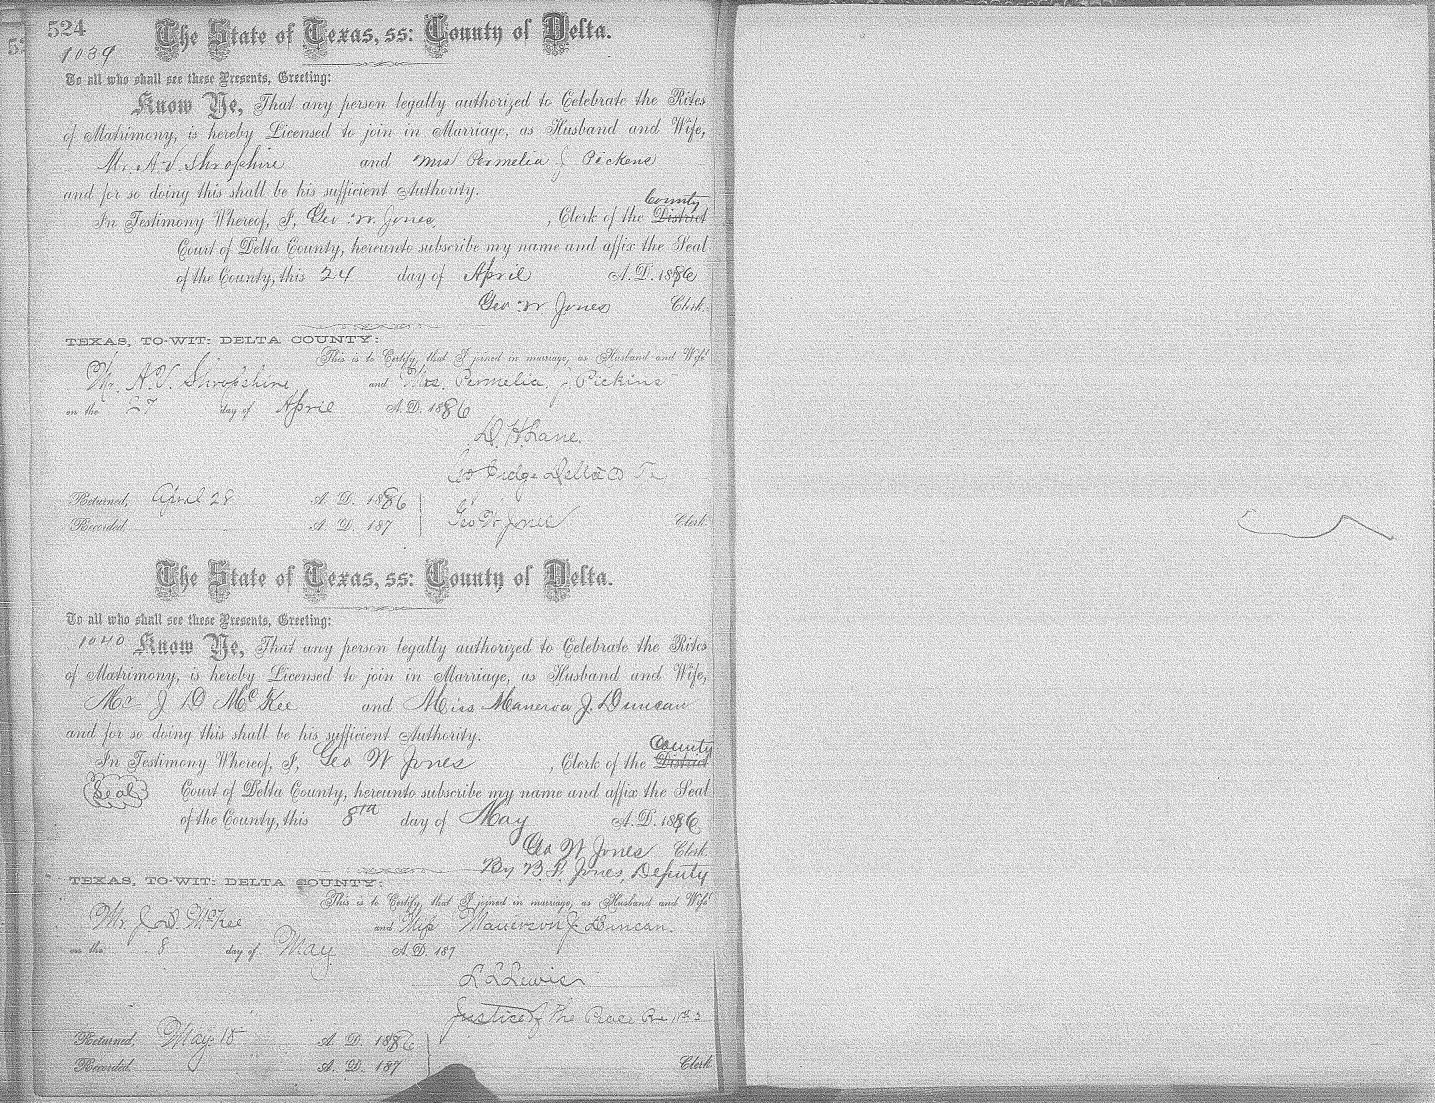 524
1039
The State of Texas, ss: County of Delta.
To all who shall see these Presents, Greeting:
Know Ye, That any person legally authorized to Celebrate the Rites
of Matrimony, is hereby Licensed to join in Marriage, as Husband and Wife,
Mr. A V. Shropshire and Mrs Permelia J Pickens
and for so doing this shall be his sufficient Authority.
County
In Testimony Whereof, I, Geo. W. Jones, Clerk of the District
Court of Delta County, hereunto subscribe my name and affix the Seal
of the County, this 24 day of April A. D. 1886
Geo W Jones Clerk.
TEXAS, TO-WIT: DELTA COUNTY:
This is to Certify, that I joined in marriage, as Husband and Wife
Mr. A.V. Shropshire and Mrs. Permelia J Pickins
on the 27 day of April A. D. 1886
D. H. Lane.
Co Judge Delta Co Tx
Returned, April 28 A. D. 1886
Recorded A. D. 187 Geo W Jones Clerk
The State of Texas, ss: County of Delta.
To all who shall see these Presents, Greeting:
1040 Know Ye, That any person legally authorized to Celebrate the Rites
of Matrimony, is hereby Licensed to join in Marriage, as Husband and Wife,
Mr J D McKee and Miss Manerva J. Duncan
and for so doing this shall be his sufficient Authority.
County
In Testimony Whereof, I, Geo W Jones, Clerk of the District
Seal Court of Delta County, hereunto subscribe my name and affix the Seal
of the County, this 8th day of May A. D. 1886
Geo W Jones Clerk.
By B. F. Jones, Deputy
TEXAS, TO-WIT: DELTA COUNTY:
This is to Certify, that I joined in marriage, as Husband and Wife
Mr. J. D. McKee and Miss J Duncan.
on the 8 day of May A. D. 187
L L Lewis
Justice of the Peace
Returned, May 15 A. D. 1886
Recorded A. D. 187 Clerk